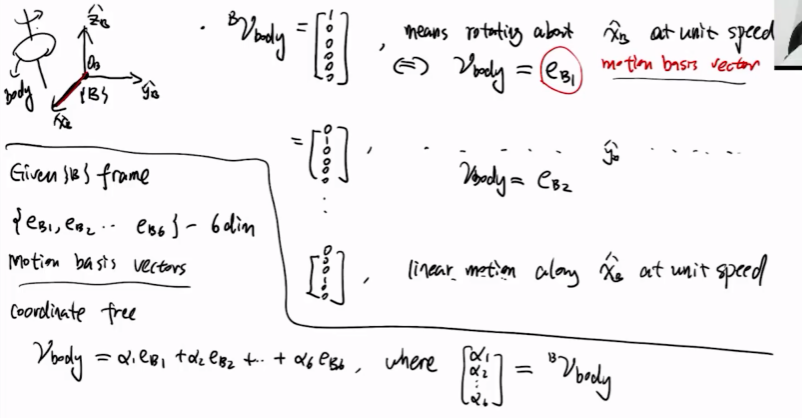 ẑ_B
O_B
body {B} ŷ_B
x̂_B
· ᴮV_body = [1 0 0 0 0 0], means rotating about x̂_B at unit speed
⇔ V_body = e_B1 motion basis vector
= [0 1 0 0 0 0], · - · · · · ŷ_B · · · · ·
V_body = e_B2
⋮
[0 0 0 1 0 0], linear motion along x̂_B at unit speed
Given {B} frame
{e_B1, e_B2 ·· e_B6} - 6 dim
Motion basis vectors
coordinate free
V_body = α₁e_B1 + α₂e_B2 + ·· + α₆e_B6, where [α₁ α₂ ⋮ α₆] = ᴮV_body